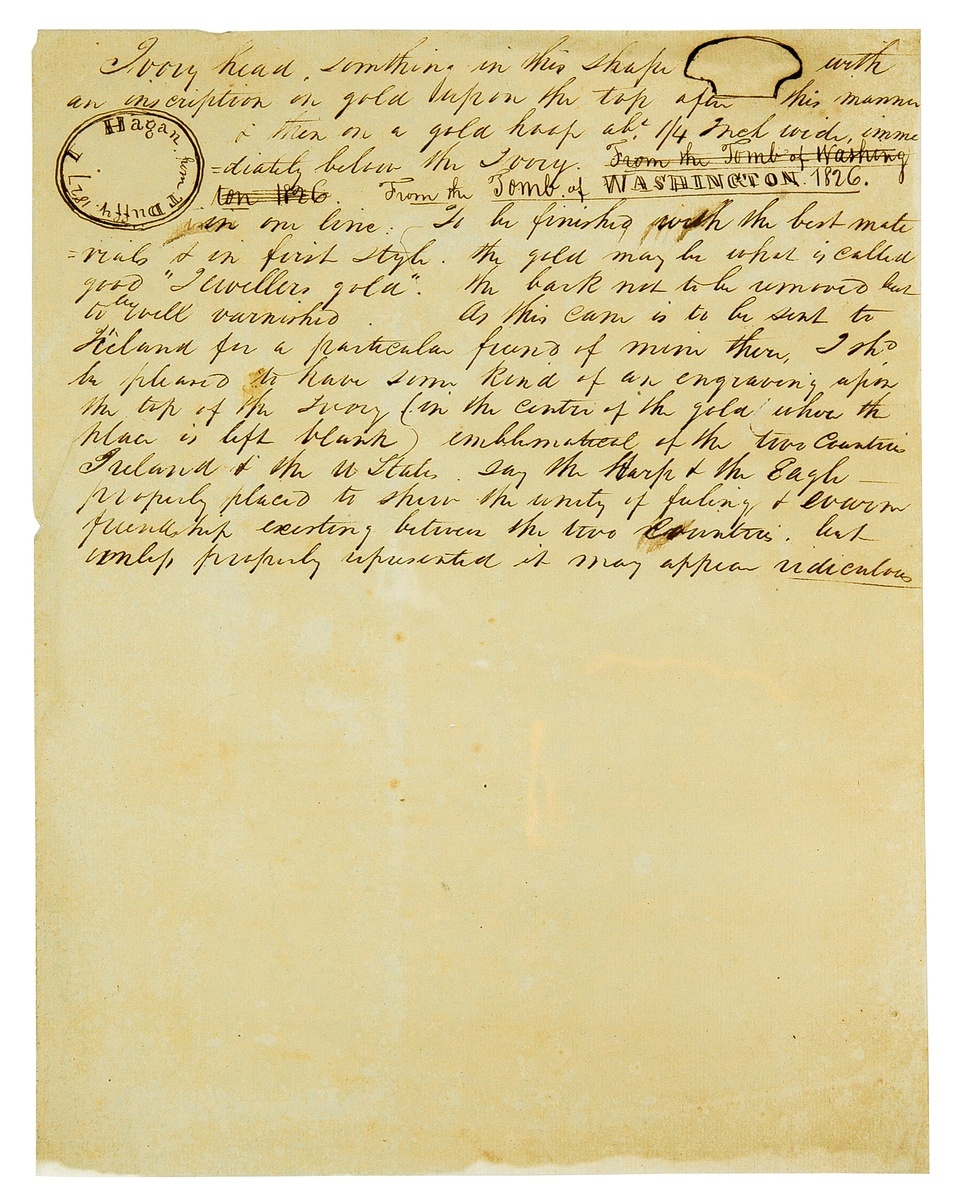 Ivory head, somthing in this shape with
an inscription on gold upon the top after this manner
J Hagan from T Duffy 1827
& then on a gold hoop abt. 1/4 Inch wide, imme
=diately below the Ivory. From the Tomb of Washing
ton 1826. From the Tomb of WASHINGTON 1826.
in one line. To be finished with the best mate
=rials & in first style. the gold may be what is called
good "Jewellers gold". the bark not to be removed but
to be well varnished. As this cane is to be sent to
Ireland for a particular friend of mine there, I shd
be pleased to have some kind of an engraving upon
the top of the Ivory (in the centre of the gold where the
place is left blank) emblematical of the two Countries
Ireland & the U States. say the Harp & the Eagle —
properly placed to shew the unity of feeling & warm
friendship existing between the two Countries. but
unless properly represented it may appear ridiculous